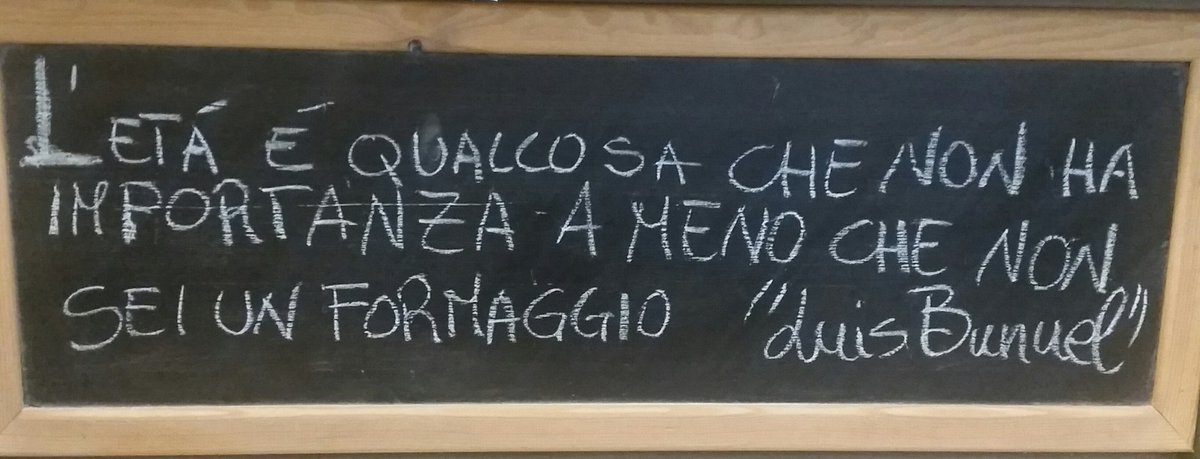 L'ETÁ É QUALCOSA CHE NON HA
IMPORTANZA A MENO CHE NON
SEI UN FORMAGGIO "Luis Bunuel"